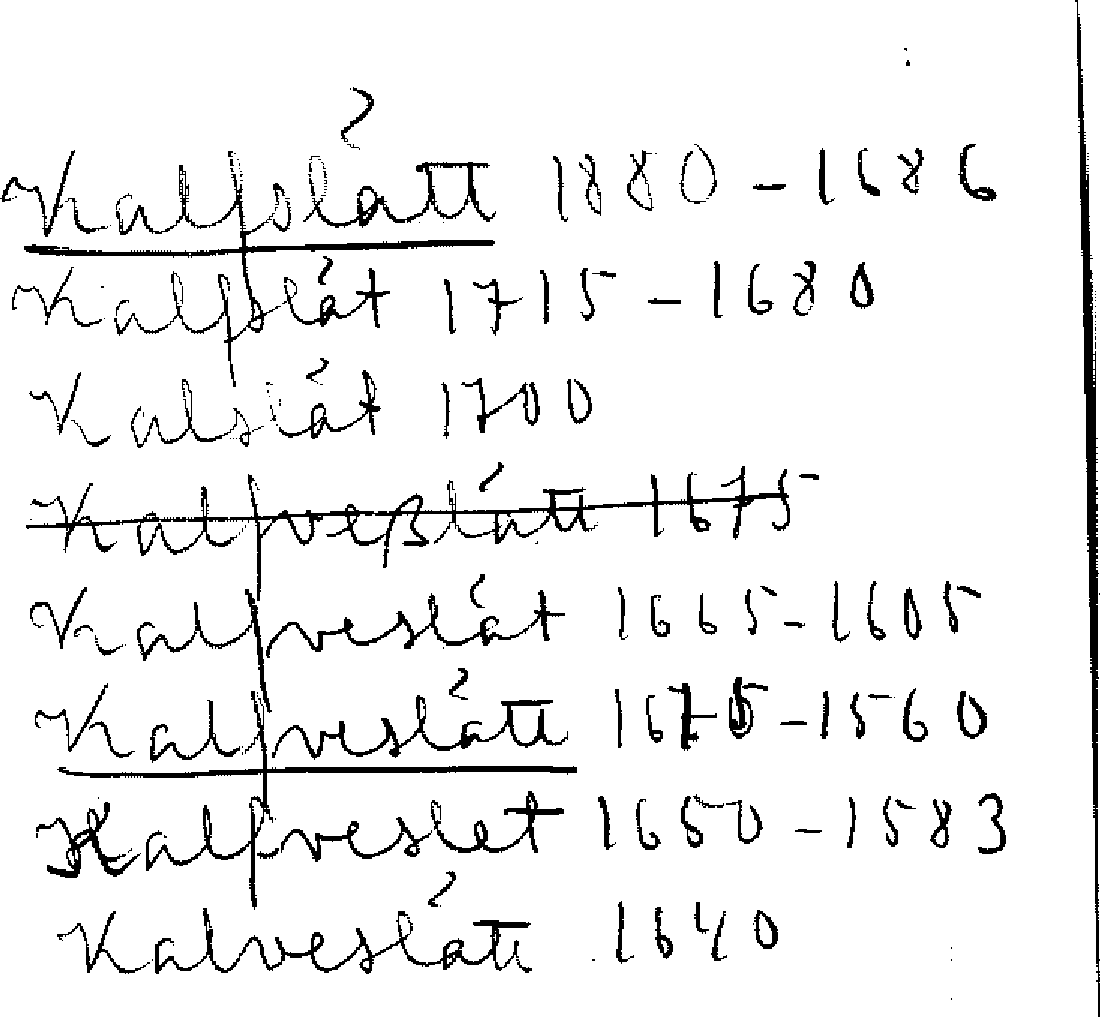 Kalfslått 1880-1686
Kalfslåt 1715-1680
Kalslåt 1700
Kalfveßlått 1675
Kalfveslåt 1665-1605
Kalfveslått 1675-1560
Kalfveslet 1650-1583
Kalveslått 1640